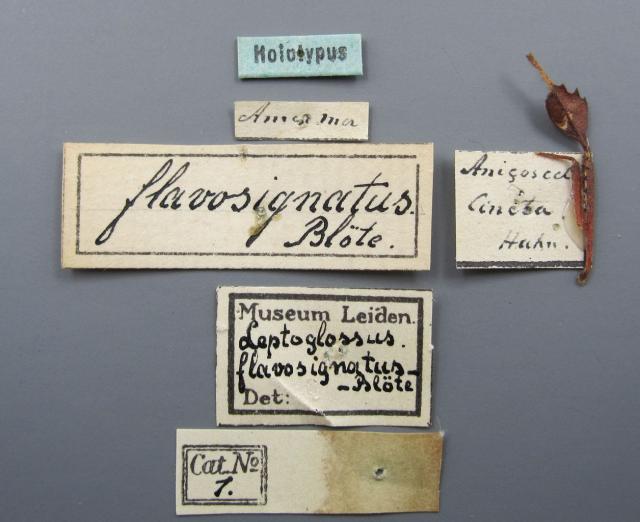 Holotypus
Amer. mer
flavosignatus.
Blöte.
Anisoscel
Cincta.
Hahn.
Museum Leiden.
Leptoglossus.
flavosignatus-
-Blöte
Det:
Cat. No
1.